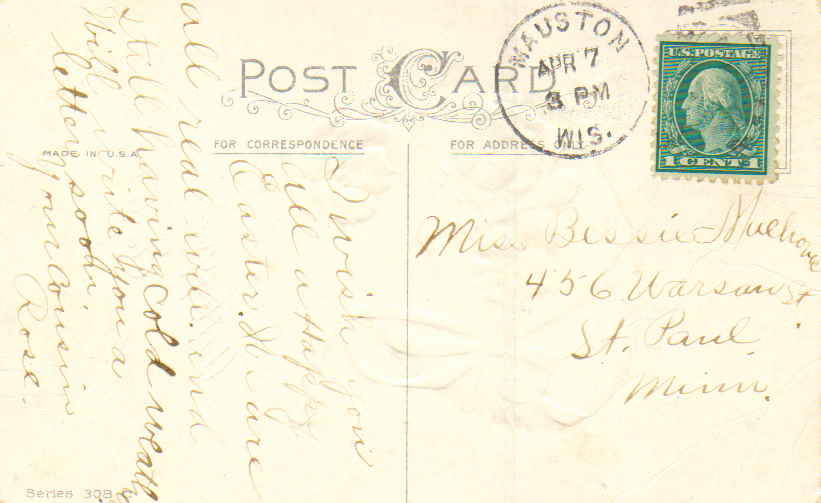 POST CARD
MAUSTON
APR 7
3 PM
WIS.
U.S. POSTAGE
1 CENT 1
FOR CORRESPONDENCE
FOR ADDRESS ONLY
MADE IN U.S.A.
I wish you
all a Happy
Easter. We are
all real well and
still having cold weath
Will write you a
letter soon.
your Cousin
Rose.
Miss Bessie
456 Warsaw St
St. Paul
Minn.
Series 30B